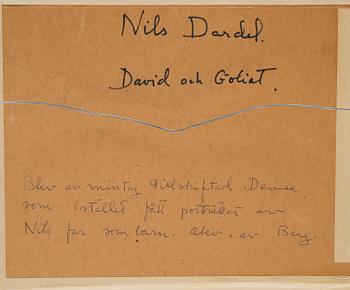 Nils Dardel.
David och Goliat.
Blev av misstag tillskiftad Denise,
som istället fått porträttet av
Nils far som barn. akv. av Berg.